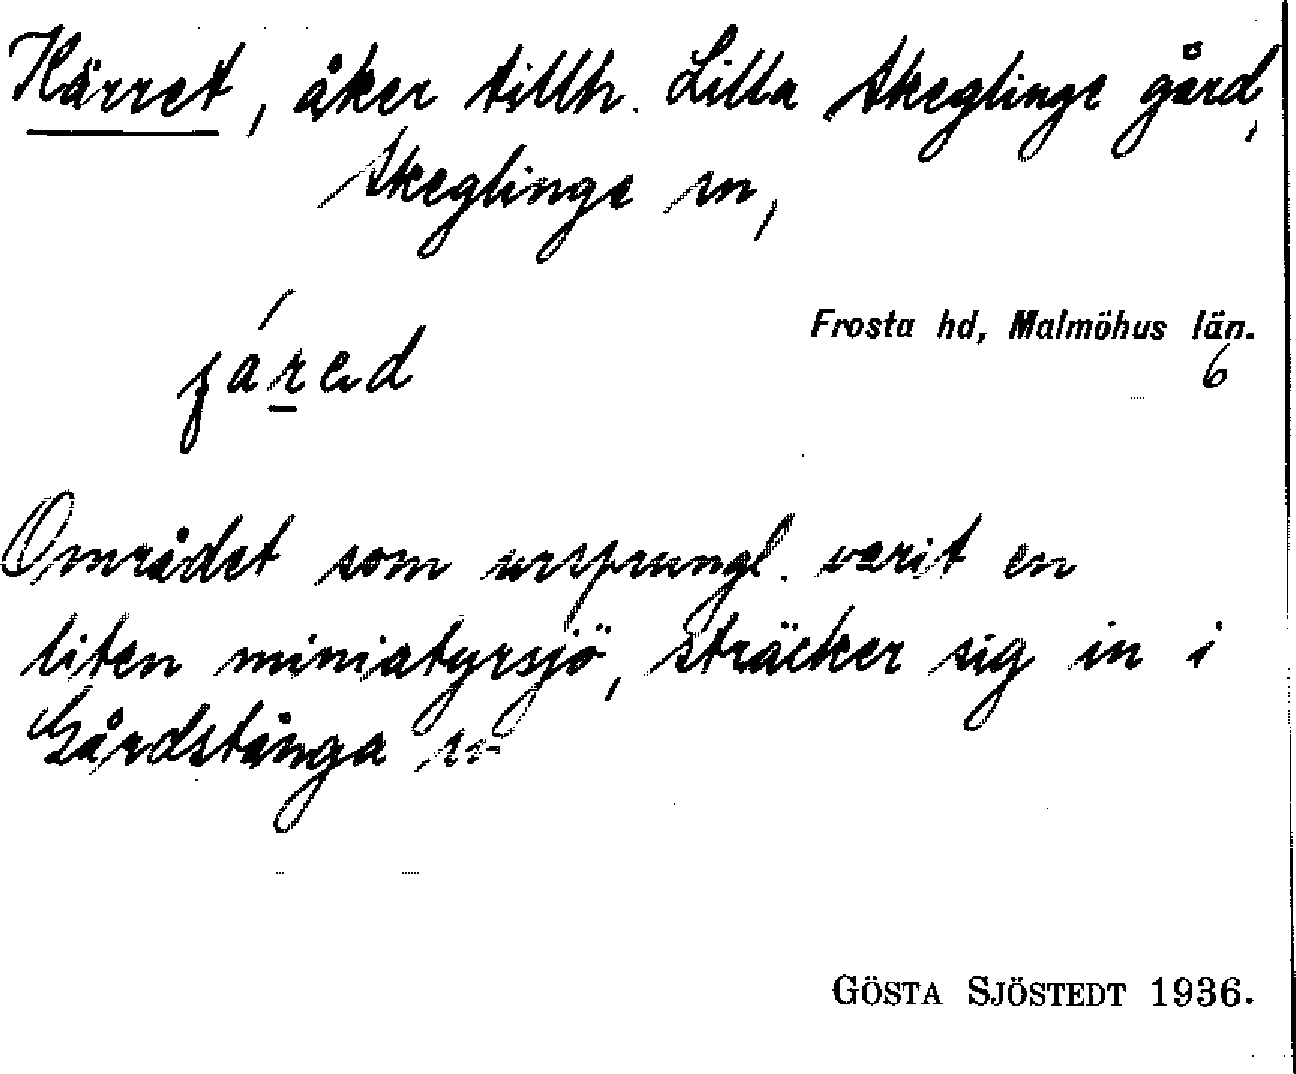 Kärret, åker tillh. Lilla Skeglinge gård,
Skeglinge sn,
Frosta hd, Malmöhus län.
6
Området som ursprungl. varit en
liten miniatyrsjö, sträcker sig in i
Gårdstånga sn
GÖSTA SJÖSTEDT 1936.